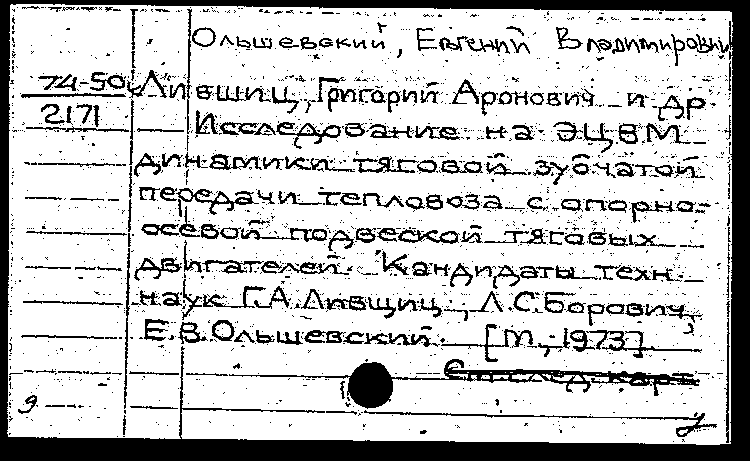 Ольшевский, Евгений Владимирович
74-50
2171
Лившиц, Григорий Аронович и др
Исследование на ЭЦВМ
динамики тяговой зубчатой
передачи тепловоза с опорно-
осевой подвеской тяговых
двигателей. Кандидаты техн.
наук Г.А.Лившиц, Л.С.Борович,
Е.В.Ольшевский. [М, 1973].
См след. карт
9